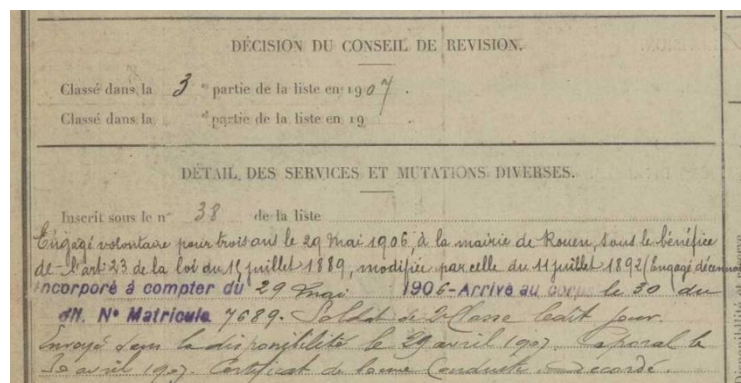 DÉCISION DU CONSEIL DE REVISION.
Classé dans la 3e partie de la liste en 1907.
Classé dans la e partie de la liste en 19
DÉTAIL DES SERVICES ET MUTATIONS DIVERSES.
Inscrit sous le n° 38 de la liste
Engagé volontaire pour trois ans le 29 mai 1906, à la mairie de Rouen, sous le bénéfice
de l'art: 23 de la loi du 15 juillet 1889, modifiée par celle du 11 juillet 1892 (Engagé
incorporé à compter du 29 mai 1906 - Arrivé au corps le 30 du
dit. N° Matricule 7689. Soldat de 2e Classe ledit jour.
Envoyé dans la disponibilité le 29 avril 1907. Caporal le
30 avril 1907. Certificat de bonne Conduite accordé.